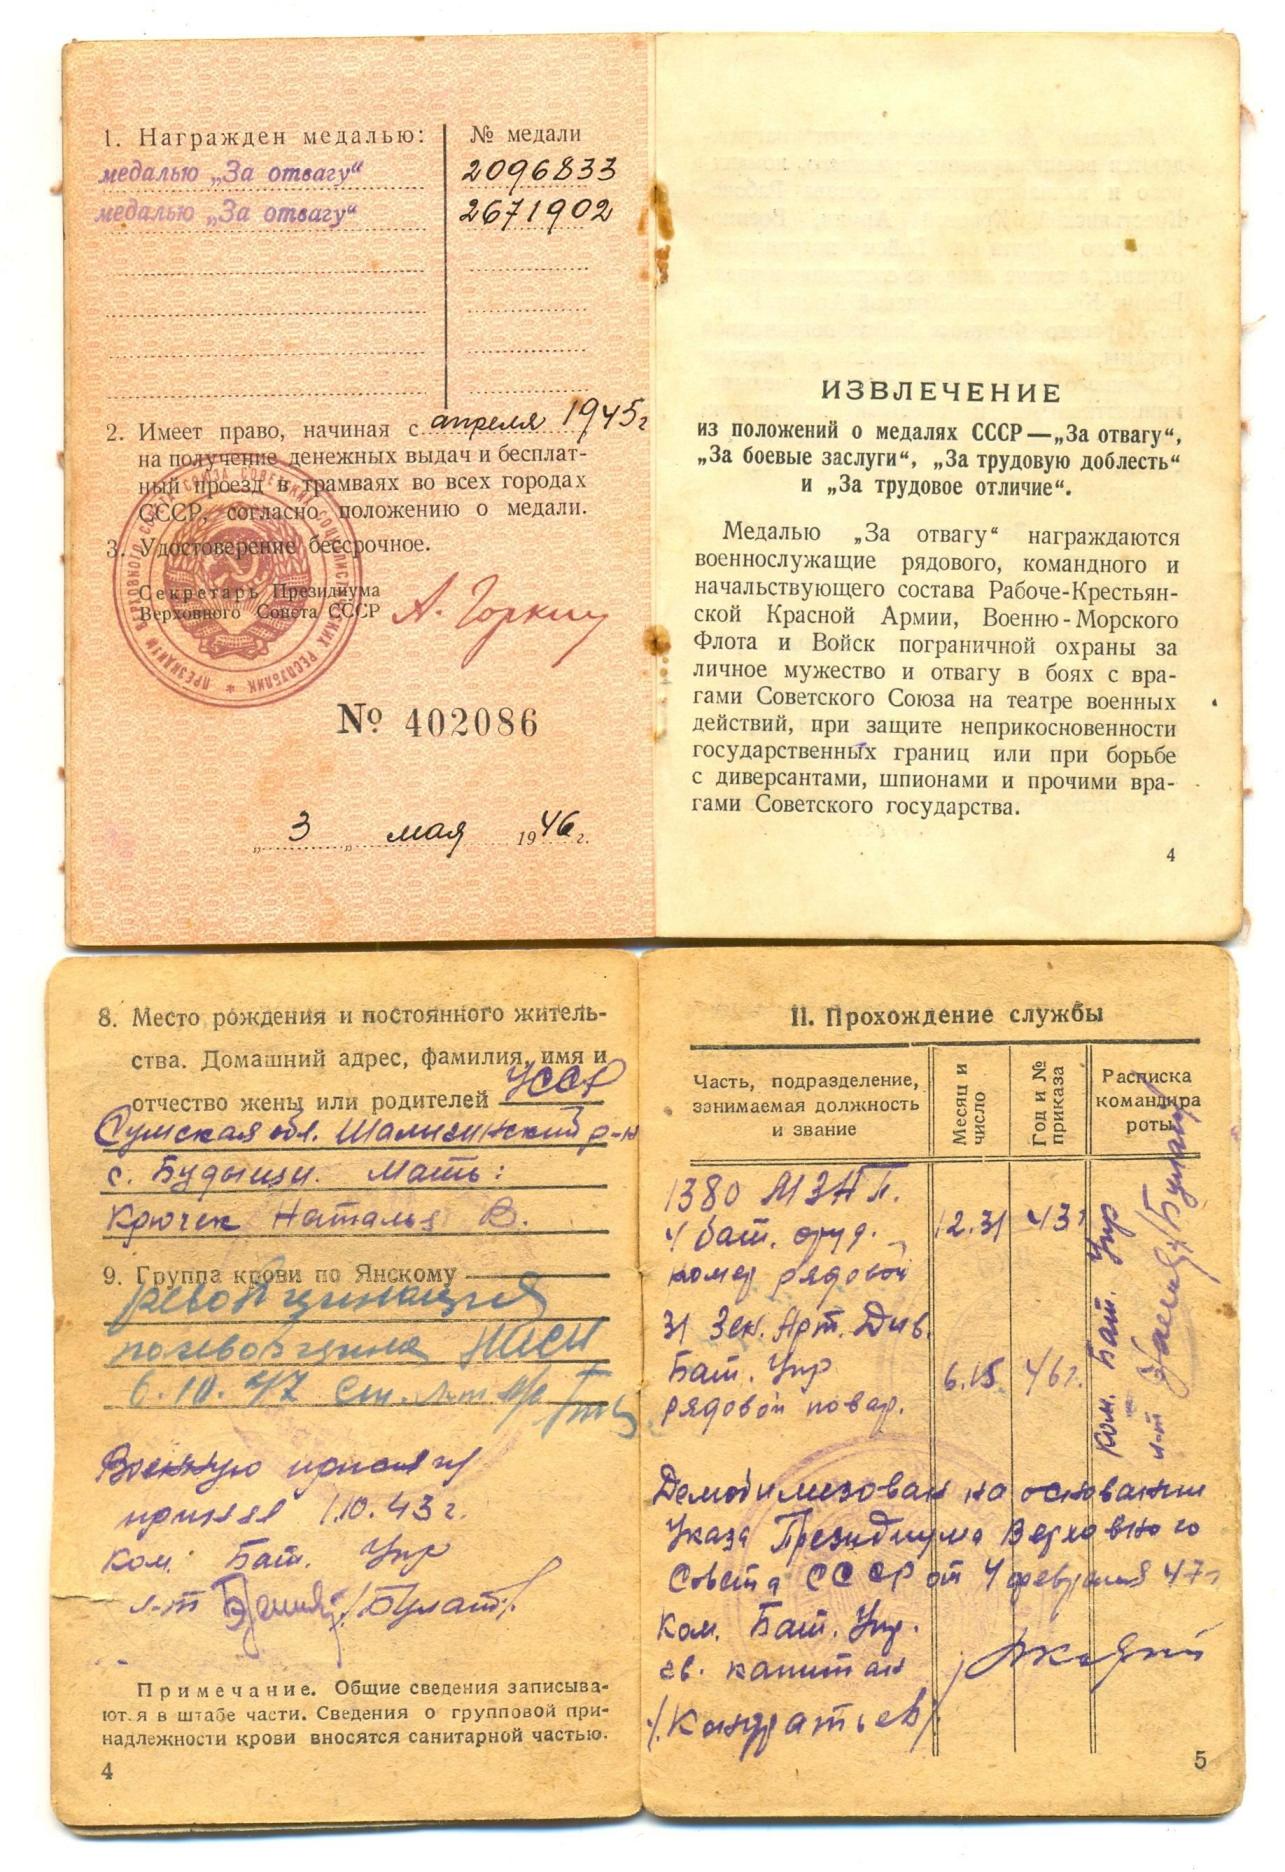 1. Награжден медалью: № медали
медалью „За отвагу“ 2096833
медалью „За отвагу“ 2671902
2. Имеет право, начиная с апреля 1945г
на получение денежных выдач и бесплат-
ный проезд в трамваях во всех городах
СССР, согласно положению о медали.
3. Удостоверение бессрочное.
Секретарь Президиума
Верховного Совета СССР А. Горкин
№ 402086
„ 3 „ мая 1946 г.
ИЗВЛЕЧЕНИЕ
из положений о медалях СССР—„За отвагу“,
„За боевые заслуги“, „За трудовую доблесть“
и „За трудовое отличие“.
Медалью „За отвагу“ награждаются
военнослужащие рядового, командного и
начальствующего состава Рабоче-Крестьян-
ской Красной Армии, Военно-Морского
Флота и Войск пограничной охраны за
личное мужество и отвагу в боях с вра-
гами Советского Союза на театре военных
действий, при защите неприкосновенности
государственных границ или при борьбе
с диверсантами, шпионами и прочими вра-
гами Советского государства.
4
8. Место рождения и постоянного житель-
ства. Домашний адрес, фамилия, имя и
отчество жены или родителей УССР
Сумская обл. Шалыгинский р-н
с. Будыщи. Мать:
Крючек Наталья В.
9. Группа крови по Янскому
6.10.47
Военную присягу
принял 1.10.43 г.
Ком. Бат. Упр
л-т /Булат/.
Примечание. Общие сведения записыва-
ются в штабе части. Сведения о групповой при-
надлежности крови вносятся санитарной частью.
4
II. Прохождение службы
Часть, подразделение,
занимаемая должность
и звание
Месяц и
число
Год и №
приказа
Расписка
командира
роты
1380 МЗАП.
4 бат. оруд. 12.31 43г
номер рядовой
31 Зен. Арт. Див.
Бат. Упр 6.15 46г.
рядовой повар.
Ком. Бат. Упр
л-т /Булат/
Демобилизован на основании
Указа Президиума Верховного
Совета СССР от 4 февраля 47г
Ком. Бат. Упр.
гв. капитан
/Кондратьев/
5